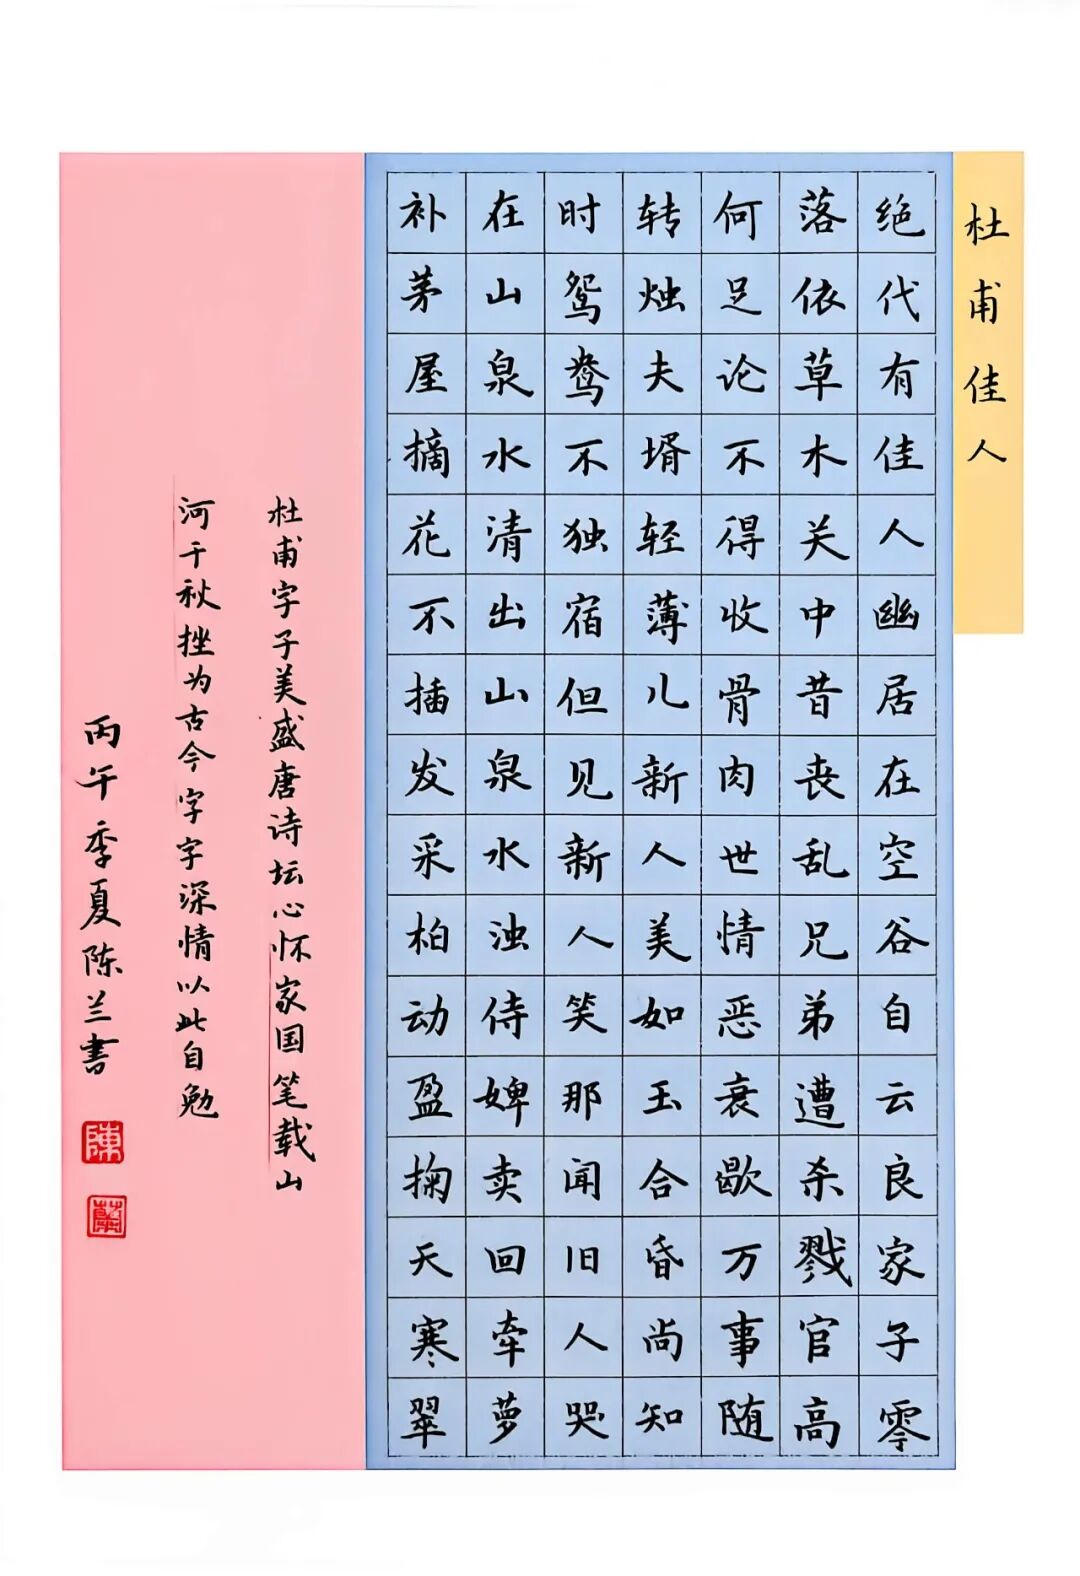 杜甫佳人
绝代有佳人幽居在空谷自云良家子零
落依草木关中昔丧乱兄弟遭杀戮官高
何足论不得收骨肉世情恶衰歇万事随
转烛夫婿轻薄儿新人美如玉合昏尚知
时鸳鸯不独宿但见新人笑那闻旧人哭
在山泉水清出山泉水浊侍婢卖回牵萝
补茅屋摘花不插发采柏动盈掬天寒翠
杜甫字子美盛唐诗坛心怀家国笔载山
河千秋挫为古今字字深情以此自勉
丙午季夏陈兰书
陳
蘭